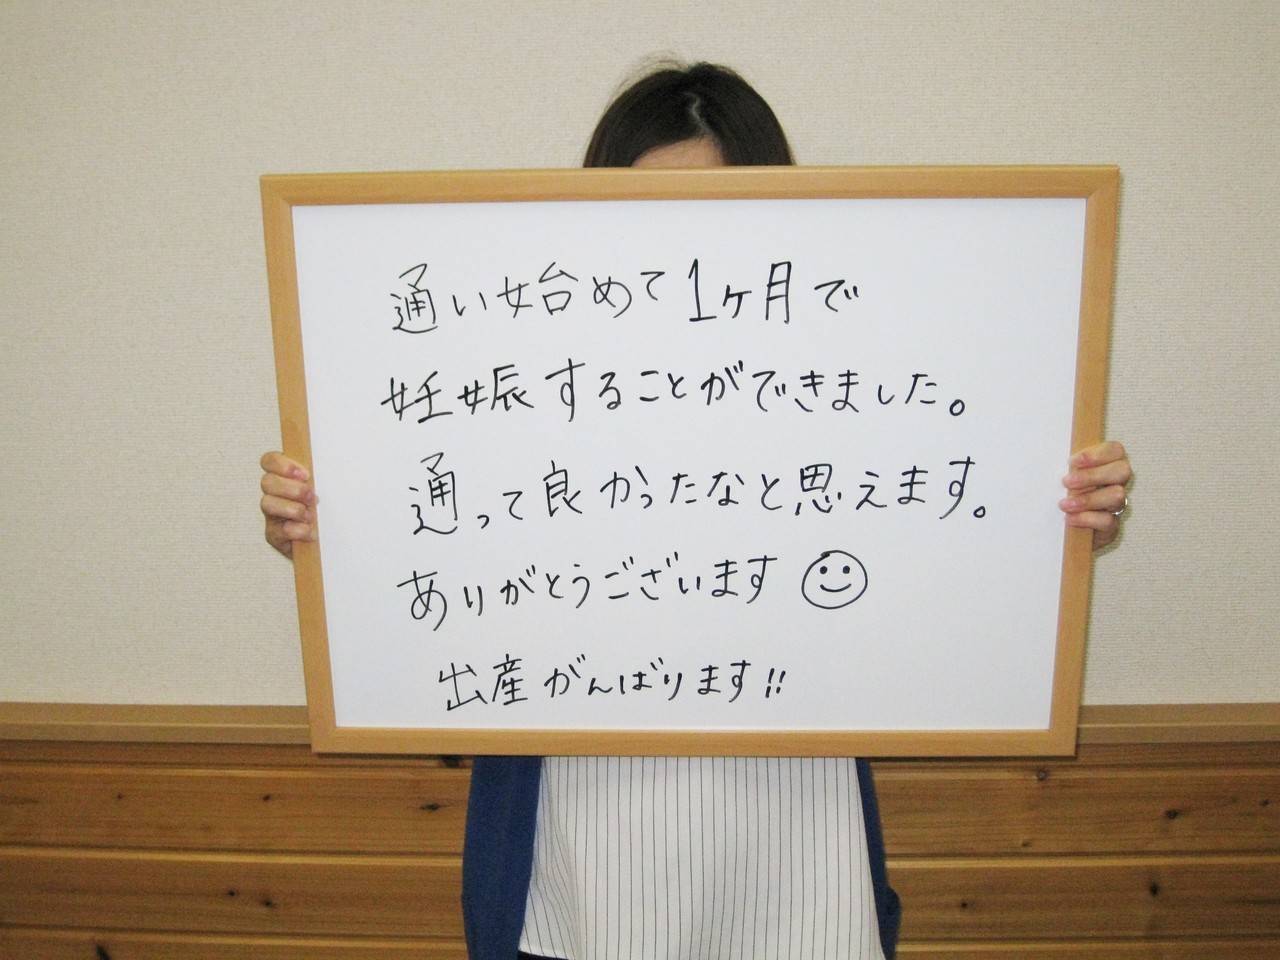 通い始めて1ヶ月で
妊娠することができました。
通って良かったなと思えます。
ありがとうございます☺
出産がんばります!!